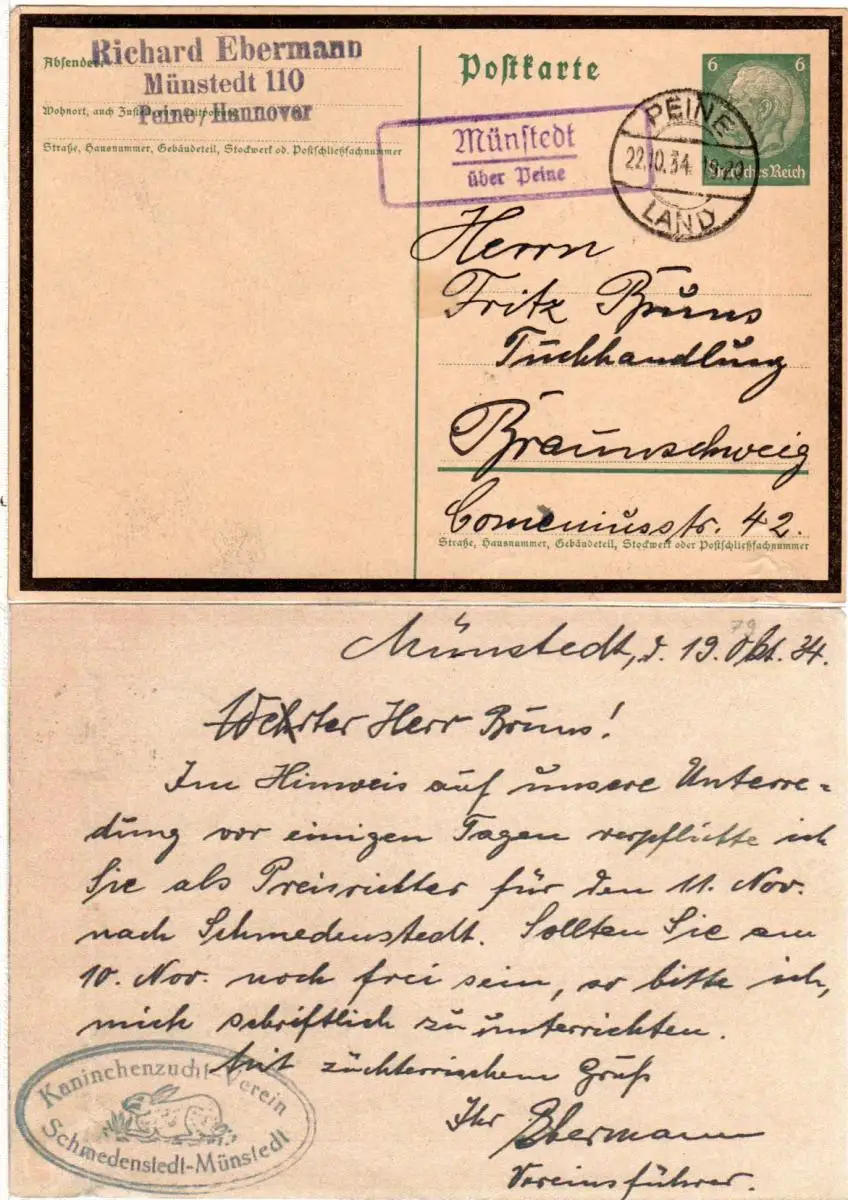 Richard Ebermann
Absender:
Münstedt 110
Wohnort, auch
Peine/Hannover
Straße, Hausnummer, Gebäudeteil, Stockwerk od. Postschließfachnummer
Postkarte
6 6
Deutsches Reich
PEINE
22.10.34 19-20
LAND
Münstedt
über Peine
Herrn
Fritz Bruns
Tuchhandlung
Braunschweig
Comeniusstr. 42.
Straße, Hausnummer, Gebäudeteil, Stockwerk oder Postschließfachnummer
79
Münstedt, d. 19. Okt. 34.
Werter Herr Bruns!
Im Hinweis auf unsere Unterre=
dung vor einigen Tagen verpflichte ich
Sie als Preisrichter für den 11. Nov.
nach Schmedenstedt. Sollten Sie am
10. Nov. noch frei sein, so bitte ich,
mich schriftlich zu unterrichten.
Mit züchterischem Gruß
Ihr Ebermann
Vereinsführer.
Kaninchenzucht-Verein
Schmedenstedt-Münstedt